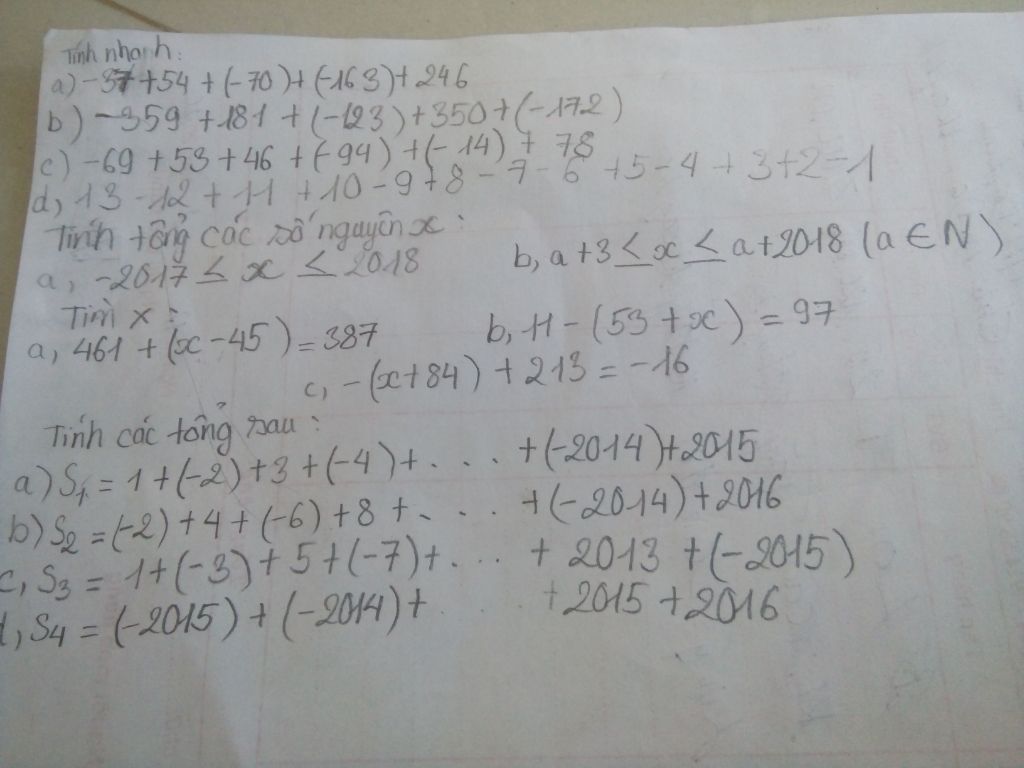 Tính nhanh:
a) -37 + 54 + (-70) + (-163) + 246
b) -359 + 181 + (-123) + 350 + (-172)
c) -69 + 53 + 46 + (-94) + (-14) + 78
d, 13 - 12 + 11 + 10 - 9 + 8 - 7 - 6 + 5 - 4 + 3 + 2 - 1
Tính tổng các số nguyên x:
a, -2017 ≤ x ≤ 2018 b, a + 3 ≤ x ≤ a + 2018 (a ∈ N)
Tìm x:
a, 461 + (x - 45) = 387 b, 11 - (53 + x) = 97
c, -(x + 84) + 213 = -16
Tính các tổng sau:
a) S1 = 1 + (-2) + 3 + (-4) + . . . + (-2014) + 2015
b) S2 = (-2) + 4 + (-6) + 8 + . . . + (-2014) + 2016
c, S3 = 1 + (-3) + 5 + (-7) + . . . + 2013 + (-2015)
d, S4 = (-2015) + (-2014) + . . . + 2015 + 2016